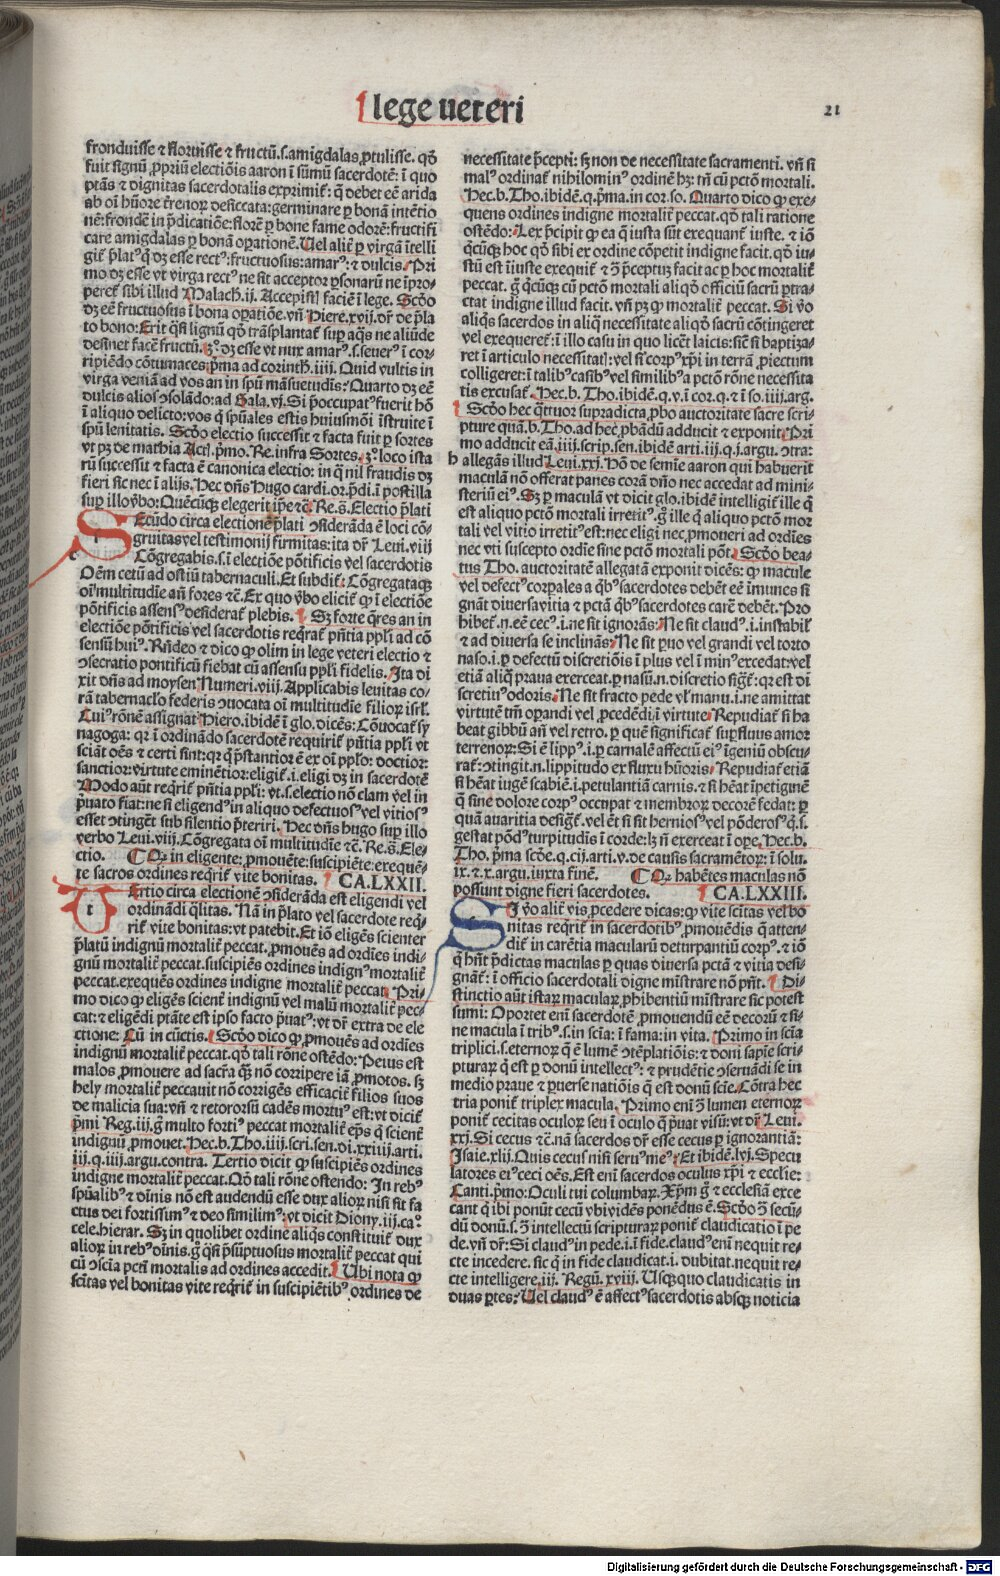 lege ueteri
21
fronduisse ⁊ floruisse ⁊ fructū.s.amigdalas ꝓtulisse. qđ
fuit signū ꝓpriū electiōis aaron ī sūmū sacerdotē: ī quo
ptās ⁊ dignitas sacerdotalis exprimit᷑: q̄ debet eē arida
ab oī hūore t̄renoꝝ desiccata: germinare ꝑ bonā intētio
nē: frondē in p̄dicatiōe: florē ꝑ bone fame odorē: fructifi
care amigdalas ꝑ bonā oꝑationē. Uel alit᷑ ꝑ virgā ītelli
git᷑ p̄latꝰ q̇ dꝫ esse rectꝰ: fructuosus: amarꝰ: ⁊ dulcis. Pri
mo dꝫ esse vt virga rectꝰ ne sit acceptor ꝑsonarū ne īpro-
peret᷑ sibi illud Malach.ij. Accepistꝭ faciē ī lege. Scđo
dꝫ eē fructuosus ī bona oꝑatiōe. vn̄ Hiere.xvij. dr̄ de p̄la
to bono: Erit q̄si lignū qđ trāsplantat᷑ suꝑ aq̄s ne aliūde
desinet facē fructū. ꝫͦ. dꝫ esse vt nux amarꝰ .s. seuerꝰ ī cor-
ripiēdo cōtumaces: p̄ma ad corinth.iiij. Quid vultis in
virga veniā ad vos an in spū māsuetudīs: Quarto dꝫ eē
dulcis alios ꝯsolādo: ad Gala.vj. Si p̄occupatꝰ fuerit hō
ī aliquo delicto: vos q̇ spūales estis huiusmōi īstruite ī
spū lenitatis. Scđo electio successit ⁊ facta fuit ꝑ sortes
vt pꝫ de mathia Actꝭ.p̄mo. Re.infra Sortes. ꝫͦ. loco ista
rū successit ⁊ facta ē canonica electio: in q̄ nil fraudis dꝫ
fieri sic nec ī alijs. Hec dn̄s Hugo cardi. or. p̄di. ī postilla
suꝑ illo v̄bo: Quēcūqꝫ elegerit ip̄e ⁊c̄. Re.s. Electio p̄lati
Ecūdo circa electionē p̄lati ꝯsiderāda ē loci cō-
gruitas vel testimonij firmitas: ita dr̄ Leui.viij
Cōgregabis.s. ī electiōe pōtificis vel sacerdotis
Oēm cetū ad ostiū tabernaculi. Et subdit᷑: Cōgregataqꝫ
oī multitudīe an̄ fores ⁊c̄. Ex quo v̄bo elicit᷑ qꝫ ī electiōe
pōtificis assensꝰ desiderat᷑ plebis. Sꝫ forte q̄res an in
electiōe pōtificis vel sacerdotis reqrat᷑ pn̄tia ppl̄i ad cō
sensū huiꝰ. Rn̄deo ⁊ dico qꝫ olim in lege veteri electio ⁊
ꝯsecratio pontificū fiebat cū assensu ppl̄i fidelis. Ita di
xit dn̄s ad moysen Numeri.viij. Applicabis leuitas co-
rā tabernacl̄o federis ꝯuocata oī multitudīe filioꝝ isrl̄.
Cuiꝰ rōnē assignat Hiero. ibidē ī glo. dicēs: Cōuocat᷑ sy
nagoga: qꝛ ī ordinādo sacerdotē requirit᷑ pn̄tia ppl̄i vt
sciāt oēs ⁊ certi sint: qꝛ q̇ p̄stantior ē ex oī ppl̄o: doctior:
sanctior: virtute eminētior: eligit᷑.i. eligi dꝫ in sacerdotē
Modo aūt reqrit᷑ pn̄tia ppl̄i: vt.s. electio nō clam vel in
p̄uato fiat: ne si eligendꝰ in aliquo defectuosꝰ vel vitiosꝰ
esset ꝯtinget᷑ sub silentio p̄teriri. Hec dn̄s hugo suꝑ illo
verbo Leui.viij. Cōgregata oī multitudīe ⁊c̄. Re.s. Ele-
ctio. ¶ Qꝛ in eligente: ꝓmouēte: suscipiēte: exequē-
te sacros ordines reqrit᷑ vite bonitas. ¶ CA.LXXII.
Ertio circa electionē ꝯsiderāda est eligendi vel
ordinādi q̄litas. Nā in p̄lato vel sacerdote req̇-
rit᷑ vite bonitas: vt patebit. Et iō eligēs scienter
p̄latū indignū mortalit᷑ peccat. ꝓmouēs ad ordīes indi-
gnū mortalit᷑ peccat. suscipiēs ordines indignꝰ mortalit᷑
peccat. exequēs ordines indigne mortalit᷑ peccat. Pri-
mo dico qꝫ eligēs scient᷑ indignū vel malū mortalit᷑ pec-
cat: ⁊ eligēdi ptāte est ipso facto p̄uatꝰ: vt dr̄ extra de ele
ctione: Cū in cūctis. Scđo dico qꝫ ꝓmouēs ad ordīes
indignū mortalit᷑ peccat. qđ tali rōne ostēdo: Peius est
malos ꝓmouere ad sacra q̄ꝫ nō corripere iā ꝓmotos. sꝫ
hely mortalit᷑ peccauit nō corrigēs efficacit᷑ filios suos
de malicia sua: vn̄ ⁊ retrorsū cadēs mortuꝰ est: vt dicit᷑
p̄mi Reg.iij. g̊ multo fortiꝰ peccat mortalit᷑ ep̄s q̇ scient᷑
indignū ꝓmouet. Hec.b. Tho.iiij. scri. sen. di.xxiiij. arti.
iij.q.iiij. argu. contra. Tertio dicit qꝫ suscipiēs ordines
indigne mortalit᷑ peccat. Qđ tali rōne ostendo: In rebꝰ
spūalibꝰ ⁊ dīnis nō est audendū esse dux alioꝝ nisi sit fa
ctus dei fortissimꝰ ⁊ deo similimꝰ: vt dicit Diony.iij.caͦ.
cele. hierar. Sꝫ in quolibet ordine aliq̇s constituit᷑ dux
alioꝝ in rebꝰ dīnis. g̊ q̄si p̄sūptuosus mortalit᷑ peccat qui
cū ꝯscīa pctī mortalis ad ordines accedit. Ubi nota qꝫ
scītas vel bonitas vite reqrit᷑ in suscipiētibꝰ ordines de
necessitate p̄cepti: sꝫ non de necessitate sacramenti. vn̄ si
malꝰ ordinat᷑ nihilominꝰ ordinē hꝫ: tn̄ cū pctō mortali.
Hec.b. Tho. ibidē.q. p̄ma. in cor. so. Quarto dico qꝫ exe-
quens ordines indigne mortalit᷑ peccat. qđ tali ratione
ostēdo: Lex p̄cipit qꝫ ea q̄ iusta sūt exequant᷑ iuste. ⁊ iō
q̇cūqꝫ hoc qđ sibi ex ordine cōpetit indigne facit. qđ iu-
stū est īiuste exequit᷑ ⁊ ꝯ̄ p̄ceptuꝫ facit ac ꝑ hoc mortalit᷑
peccat. g̊ q̇cūqꝫ cū pctō mortali aliqđ officiū sacrū ꝑtra-
ctat indigne illud facit. vn̄ pꝫ qꝫ mortalit᷑ peccat. Si v̊o
aliq̇s sacerdos in aliq̄ necessitate aliqđ sacrū cōtingeret
vel exequeret᷑: ī illo casu in quo licet᷑ laicis: sic᷑ si baptiza-
ret ī articulo necessitatꝭ: vel si corpꝰ xp̄i in terrā ꝓiectum
colligeret: ī talibꝰ casibꝰ vel similibꝰ a pctō rōne necessita
tis excusat᷑. Hec.b. Tho. ibidē.q.v. ī cor.q. ⁊ ī so.iiij. arg.
Scđo hec q̄tuor supradicta ꝓbo auctoritate sacre scri-
pture quā.b. Tho. ad hec ꝓbādū adducit ⁊ exponit. Pri
mo adducit eā.iiij. scrip. sen. ibidē arti.iij.q.j. argu. ꝯtra:
b allegās illud Leui.xxj. Hō de semīe aaron qui habuerit
maculā nō offerat panes corā dn̄o nec accedat ad mini-
steriū eiꝰ. Sꝫ ꝑ maculā vt dicit glo. ibidē intelligit᷑ ille q̇
est aliquo pctō mortali irretitꝰ. g̊ ille q̇ aliquo pctō mor
tali vel vitio irretitꝰ est: nec eligi nec ꝓmoueri ad ordīes
nec vti suscepto ordīe sine pctō mortali pōt. Scđo bea-
tus Tho. auctoritatē allegatā exponit dicēs: qꝫ macule
vel defectꝰ corꝑales a q̇bꝰ sacerdotes debēt eē īmunes si
gnāt diuersa vitia ⁊ pctā q̇bꝰ sacerdotes carē debēt. Pro
hibet᷑.n. eē cecꝰ.i. ne sit ignorās: Ne sit claudꝰ.i. instabilꝭ
⁊ ad diuersa se inclinās: Ne sit ꝑuo vel grandi vel torto
naso.i. ꝑ defectū discretiōis ī plus vel ī minꝰ excedat: vel
etiā aliq̄ praua exerceat. ꝑ nasū.n. discretio sigt᷑: qꝛ est di
scretiuꝰ odoris. Ne sit fracto pede vl̓ manu.i. ne amittat
virtutē tm̄ oꝑandi vel ꝓcedēdi ī virtute. Repudiat᷑ si ha
beat gibbū an̄ vel retro. ꝑ quē significat᷑ suꝑfluus amor
terrenoꝝ: Si ē lippꝰ.i. ꝑ carnalē affectū eiꝰ īgeniū obscu-
rat᷑: ꝯtingit.n. lippitudo ex fluxu hūoris. Repudiat᷑ etiā
si hēat iugē scabiē.i. petulantiā carnis. ⁊ si hēat īpetiginē
q̄ sine dolore corpꝰ occupat ⁊ membroꝝ decorē fedat: ꝑ
quā auaritia desigt᷑. vel ēt si sit herniosꝰ vel pōderosꝰ.q.s.
gestat pōdꝰ turpitudīs ī corde: lꝫ n̄ exerceat ī oꝑe. Hec.b.
Tho. p̄ma scđe.q.cij. arti.v. de causis sacramētoꝝ: ī solu.
ix. ⁊ x. argu. iuxta finē. ¶ Qꝛ habētes maculas nō
possunt digne fieri sacerdotes. ¶ CA.LXXIII.
I v̊o alit᷑ vis ꝓcedere dicas: qꝫ vite scītas vel bo
nitas reqrit᷑ in sacerdotibꝰ ꝓmouēdis q̄ atten-
dit᷑ in carētia macularū deturpantiū corpꝰ. ⁊ iō
q̇ hn̄t p̄dictas maculas ꝑ quas diuersa pctā ⁊ vitia desi-
gnāt᷑: ī officio sacerdotali digne mīstrare nō pn̄t. Di-
stinctio aūt istaꝝ maculaꝝ ꝓhibentiū mīstrare sic potest
sumi: Oportet eni sacerdotē ꝓmouendū eē decorū ⁊ si-
ne macula ī tribꝰ.s. in scīa: ī fama: in vita. Primo in scīa
triplici.s. eternoꝝ q̄ ē lumē ꝯtēplatiōis: ⁊ doni sapīe scri-
pturaꝝ q̇ est ꝑ donū intellectꝰ: ⁊ prudētie ꝯseruādi se in
medio praue ⁊ ꝑuerse natiōis q̄ est donū scīe. Cōtra hec
tria ponit᷑ triplex macula. Primo enī ꝯ̄ lumen eternoꝝ
ponit᷑ cecitas oculoꝝ seu ī oculo q̄ p̄uat visū: vt dr̄ Leui.
xxj. Si cecus ⁊c̄. nā sacerdos dr̄ esse cecus ꝑ ignorantiā:
Isaie.xlij. Quis cecus nisi seruꝰ meꝰ: Et ibidē.lvj. Specu
latores eiꝰ ceci oēs. Est enī sacerdos oculus xp̄i ⁊ ecclīe:
Canti.p̄mo: Oculi tui columbaꝝ. Xp̄m g̊ ⁊ ecclesiā exce
cant q̇ ibi ponūt cecū vbi vidēs ponēdus ē. Scđo ꝯ̄ secū-
dū donū.s. ꝯ̄ intellectū scripturaꝝ ponit᷑ claudicatio ī pe
de. vn̄ dr̄: Si claudꝰ in pede.i. ī fide. claudꝰ enī nequit re-
cte incedere. sic q̇ in fide claudicat.i. dubitat. nequit re-
cte intelligere.iij. Regū.xviij. Usqꝫquo claudicatis in
duas ꝑtes: Uel claudꝰ ē affectꝰ sacerdotis absqꝫ noticia
Digitalisierung gefördert durch die Deutsche Forschungsgemeinschaft - DFG